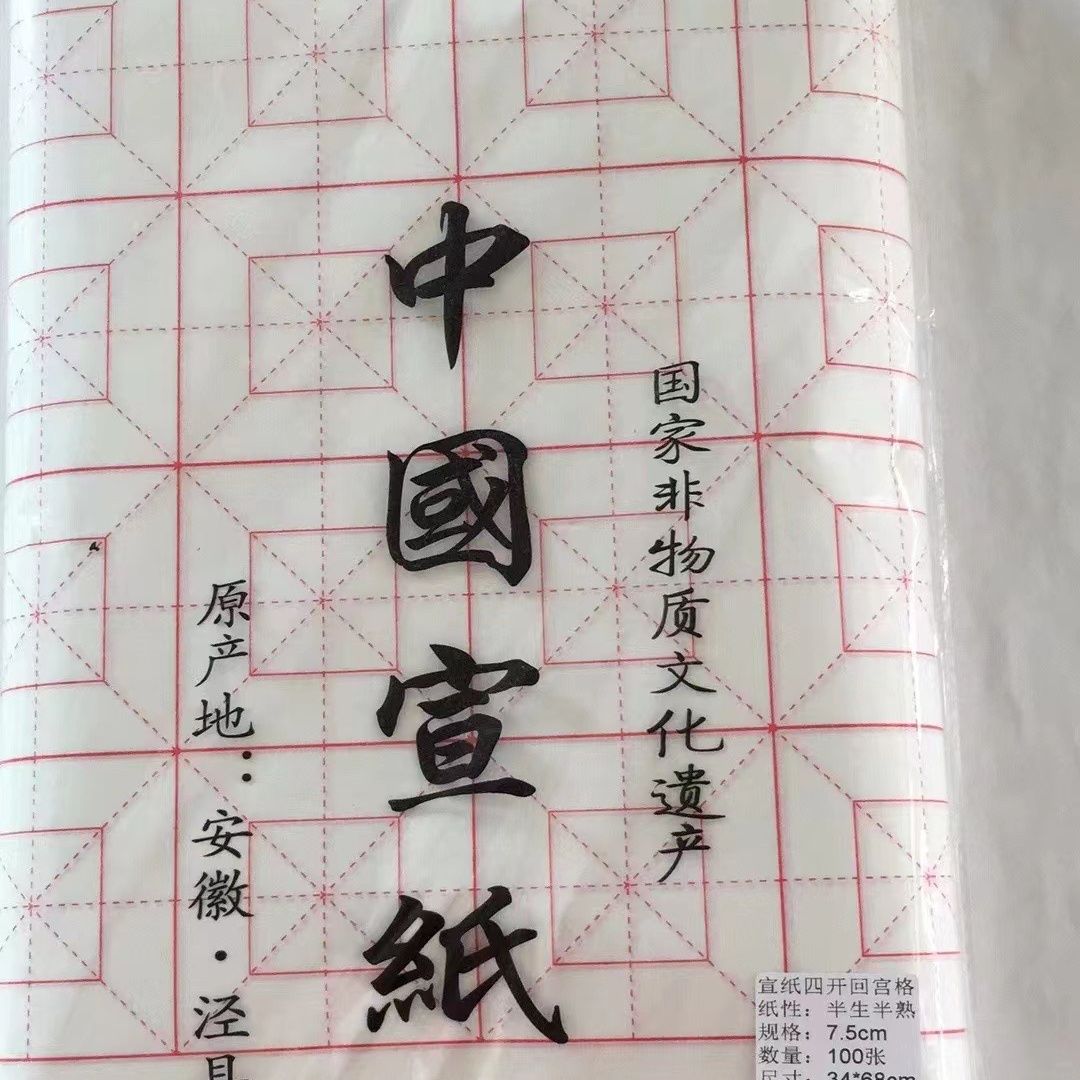 国家非物质文化遗产
中國宣紙
原产地：安徽·泾县
宣纸四开回宫格
纸性：半生半熟
规格：7.5cm
数量：100张
尺寸：34*68cm